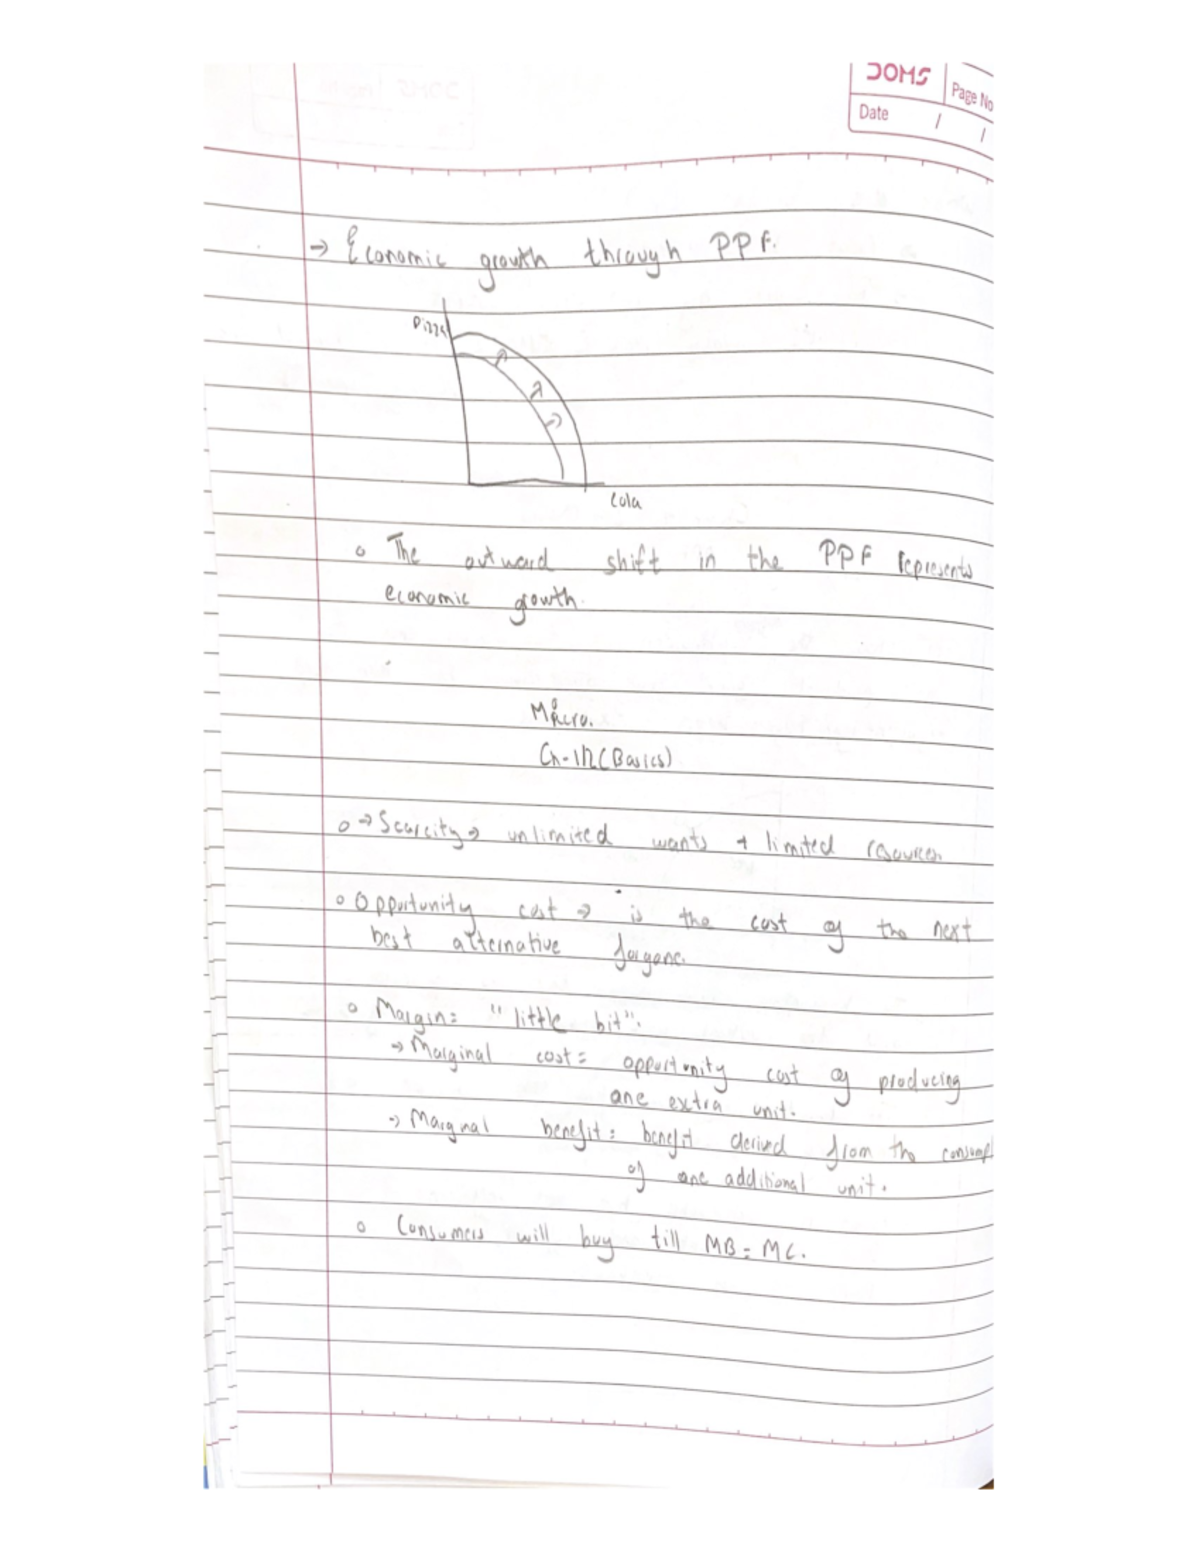 DOMS
Page No
Date / /
→ Economic growth through PPF.
Pizza
Cola
o The outward shift in the PPF represents
economic growth.
Macro.
Ch-1/2 (Basics)
o → Scarcity → unlimited wants + limited resources
o Opportunity cost → is the cost of the next
best alternative forgone.
o Margin = "little bit".
→ Marginal cost = opportunity cost of producing
one extra unit.
→ Marginal benefit = benefit derived from the consump
of one additional unit.
o Consumers will buy till MB = MC.